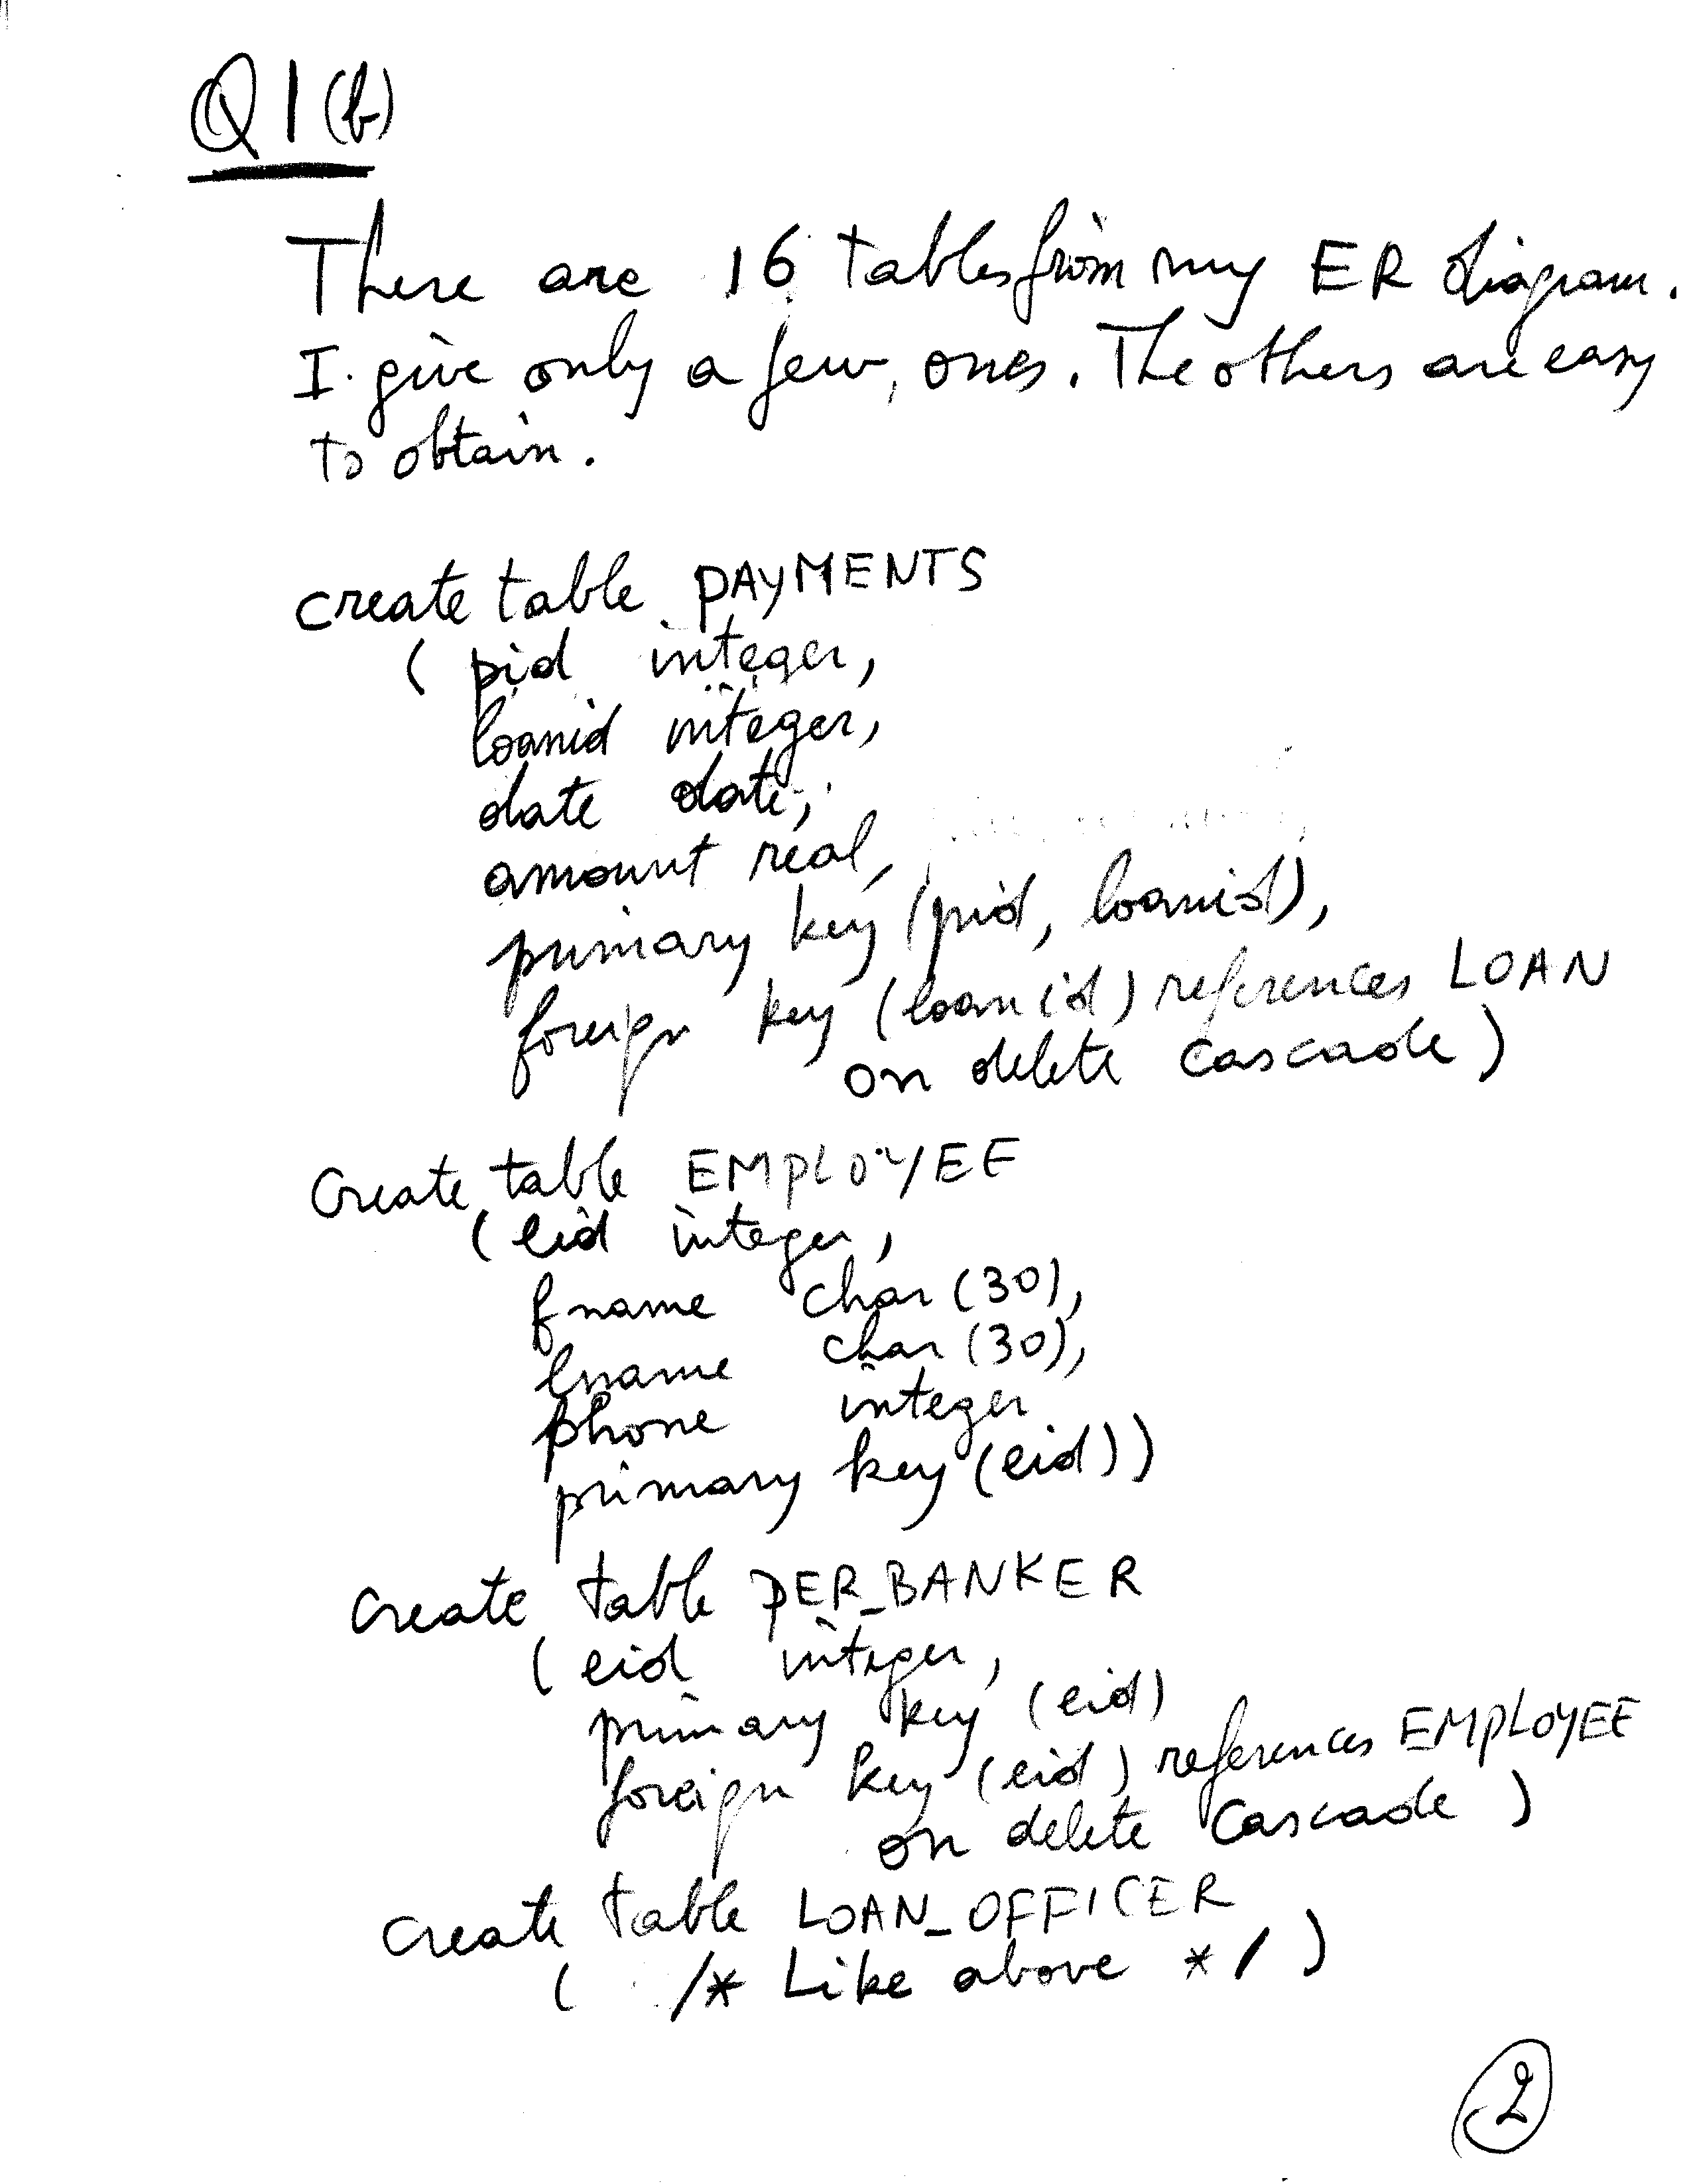 Q1(b)
There are 16 tables from my ER diagram.
I give only a few, ones. The others are easy
to obtain.
create table PAYMENTS
( pid integer,
loanid integer,
date date,
amount real,
primary key (pid, loanid),
foreign key (loanid) references LOAN
on delete cascade)
Create table EMPLOYEE
( eid integer,
fname char(30),
lname char(30),
phone integer
primary key (eid))
create table PER_BANKER
( eid integer,
primary key (eid)
foreign key (eid) references EMPLOYEE
on delete Cascade )
create table LOAN_OFFICER
( /* Like above */ )
2